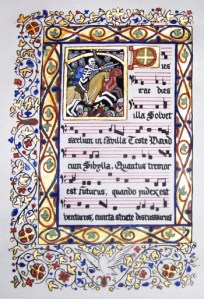 Dies
irae dies
illa Solvet
saeclum in favilla Teste David
cum Sibylla. Quantus tremor
est futurus, quando judex est
venturus, cuncta stricte discussurus